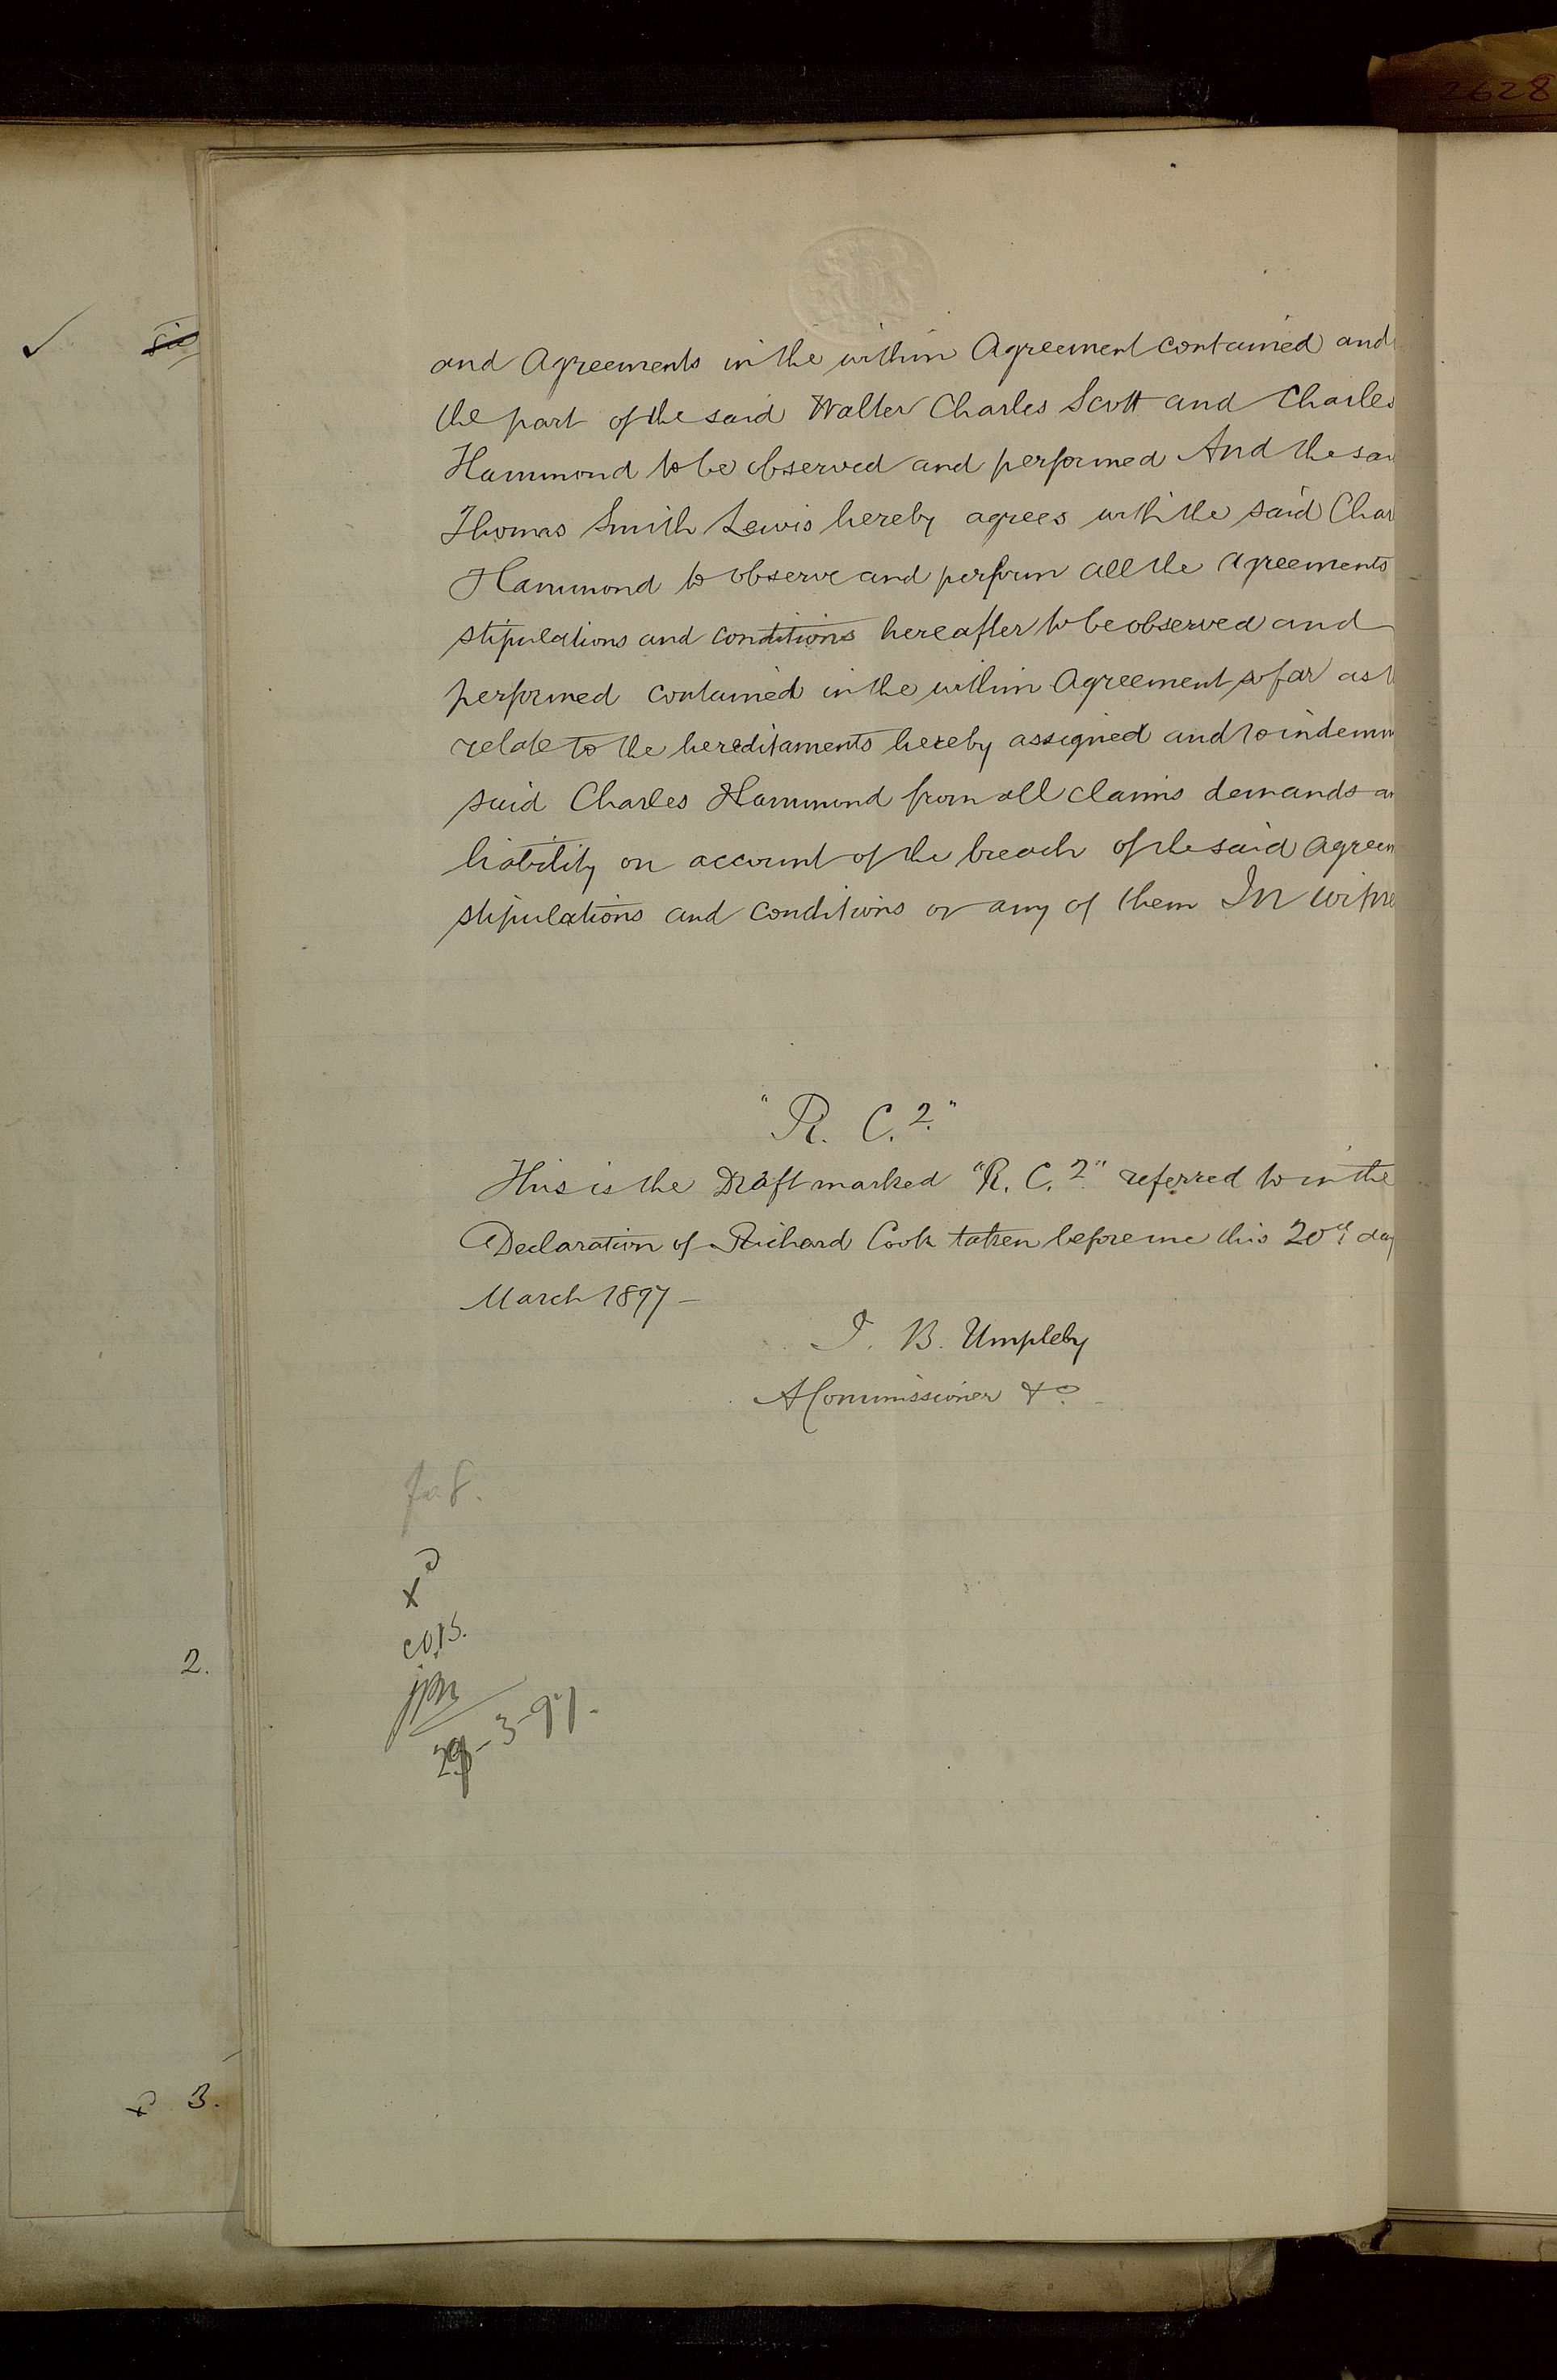 2628
and Agreements in the within Agreement contained and
the part of the said Walter Charles Scott and Charles
Hammond to be observed and performed And the sai
Thomas Smith Lewis hereby agrees with the said Char
Hammond to observe and perform all the Agreements
stipulations and conditions hereafter to be observed and
performed contained in the within Agreement so far as t
relate to the hereditaments hereby assigned and to indemn
said Charles Hammond from all claims demands an
liability on account of the breach of the said Agreem
stipulations and conditions or any of them In witne
"R. C. 2."
This is the Draft marked "R. C. 2." referred to in the
Declaration of Richard Cook taken before me this 20th day
March 1897 –
J. B. Umpleby
A Commissioner &c.
2.
29-3-97.
3.